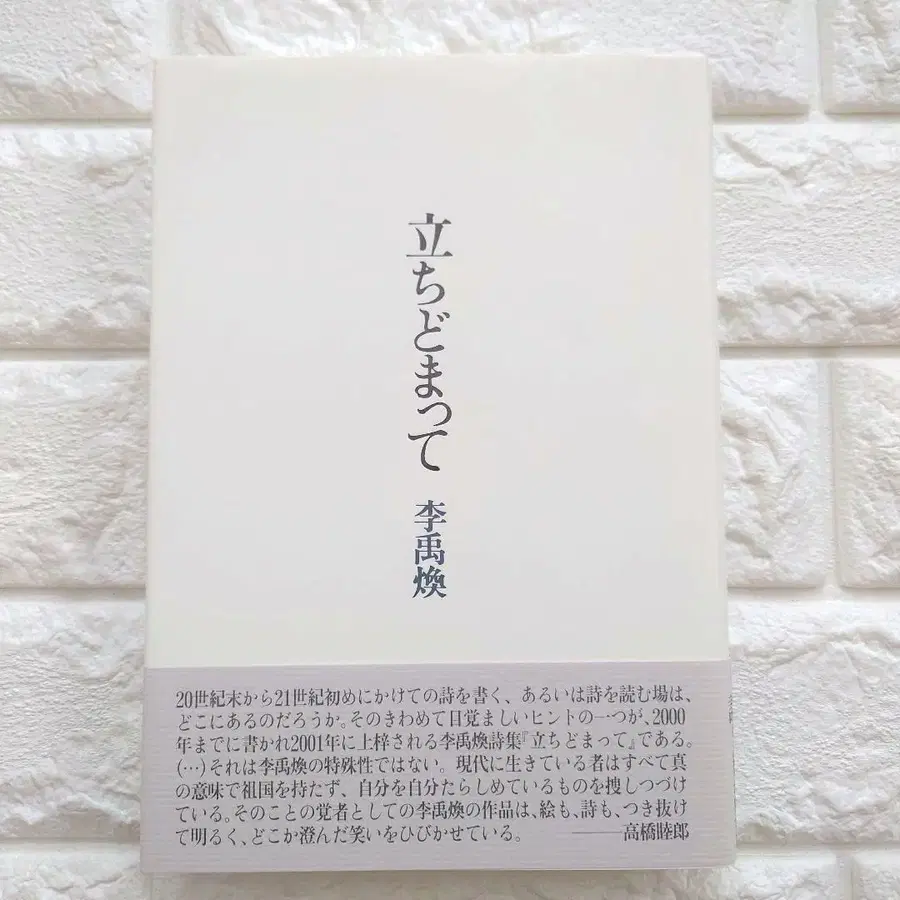 立ちどまって
李禹煥
20世紀末から21世紀初めにかけての詩を書く、あるいは詩を読む場は、
どこにあるのだろうか。そのきわめて目覚ましいヒントの一つが、2000
年までに書かれ2001年に上梓される李禹煥詩集『立ちどまって』である。
(…)それは李禹煥の特殊性ではない。現代に生きている者はすべて真
の意味で祖国を持たず、自分を自分たらしめているものを捜しつづけ
ている。そのことの覚者としての李禹煥の作品は、絵も、詩も、つき抜け
て明るく、どこか澄んだ笑いをひびかせている。 ——高橋睦郎